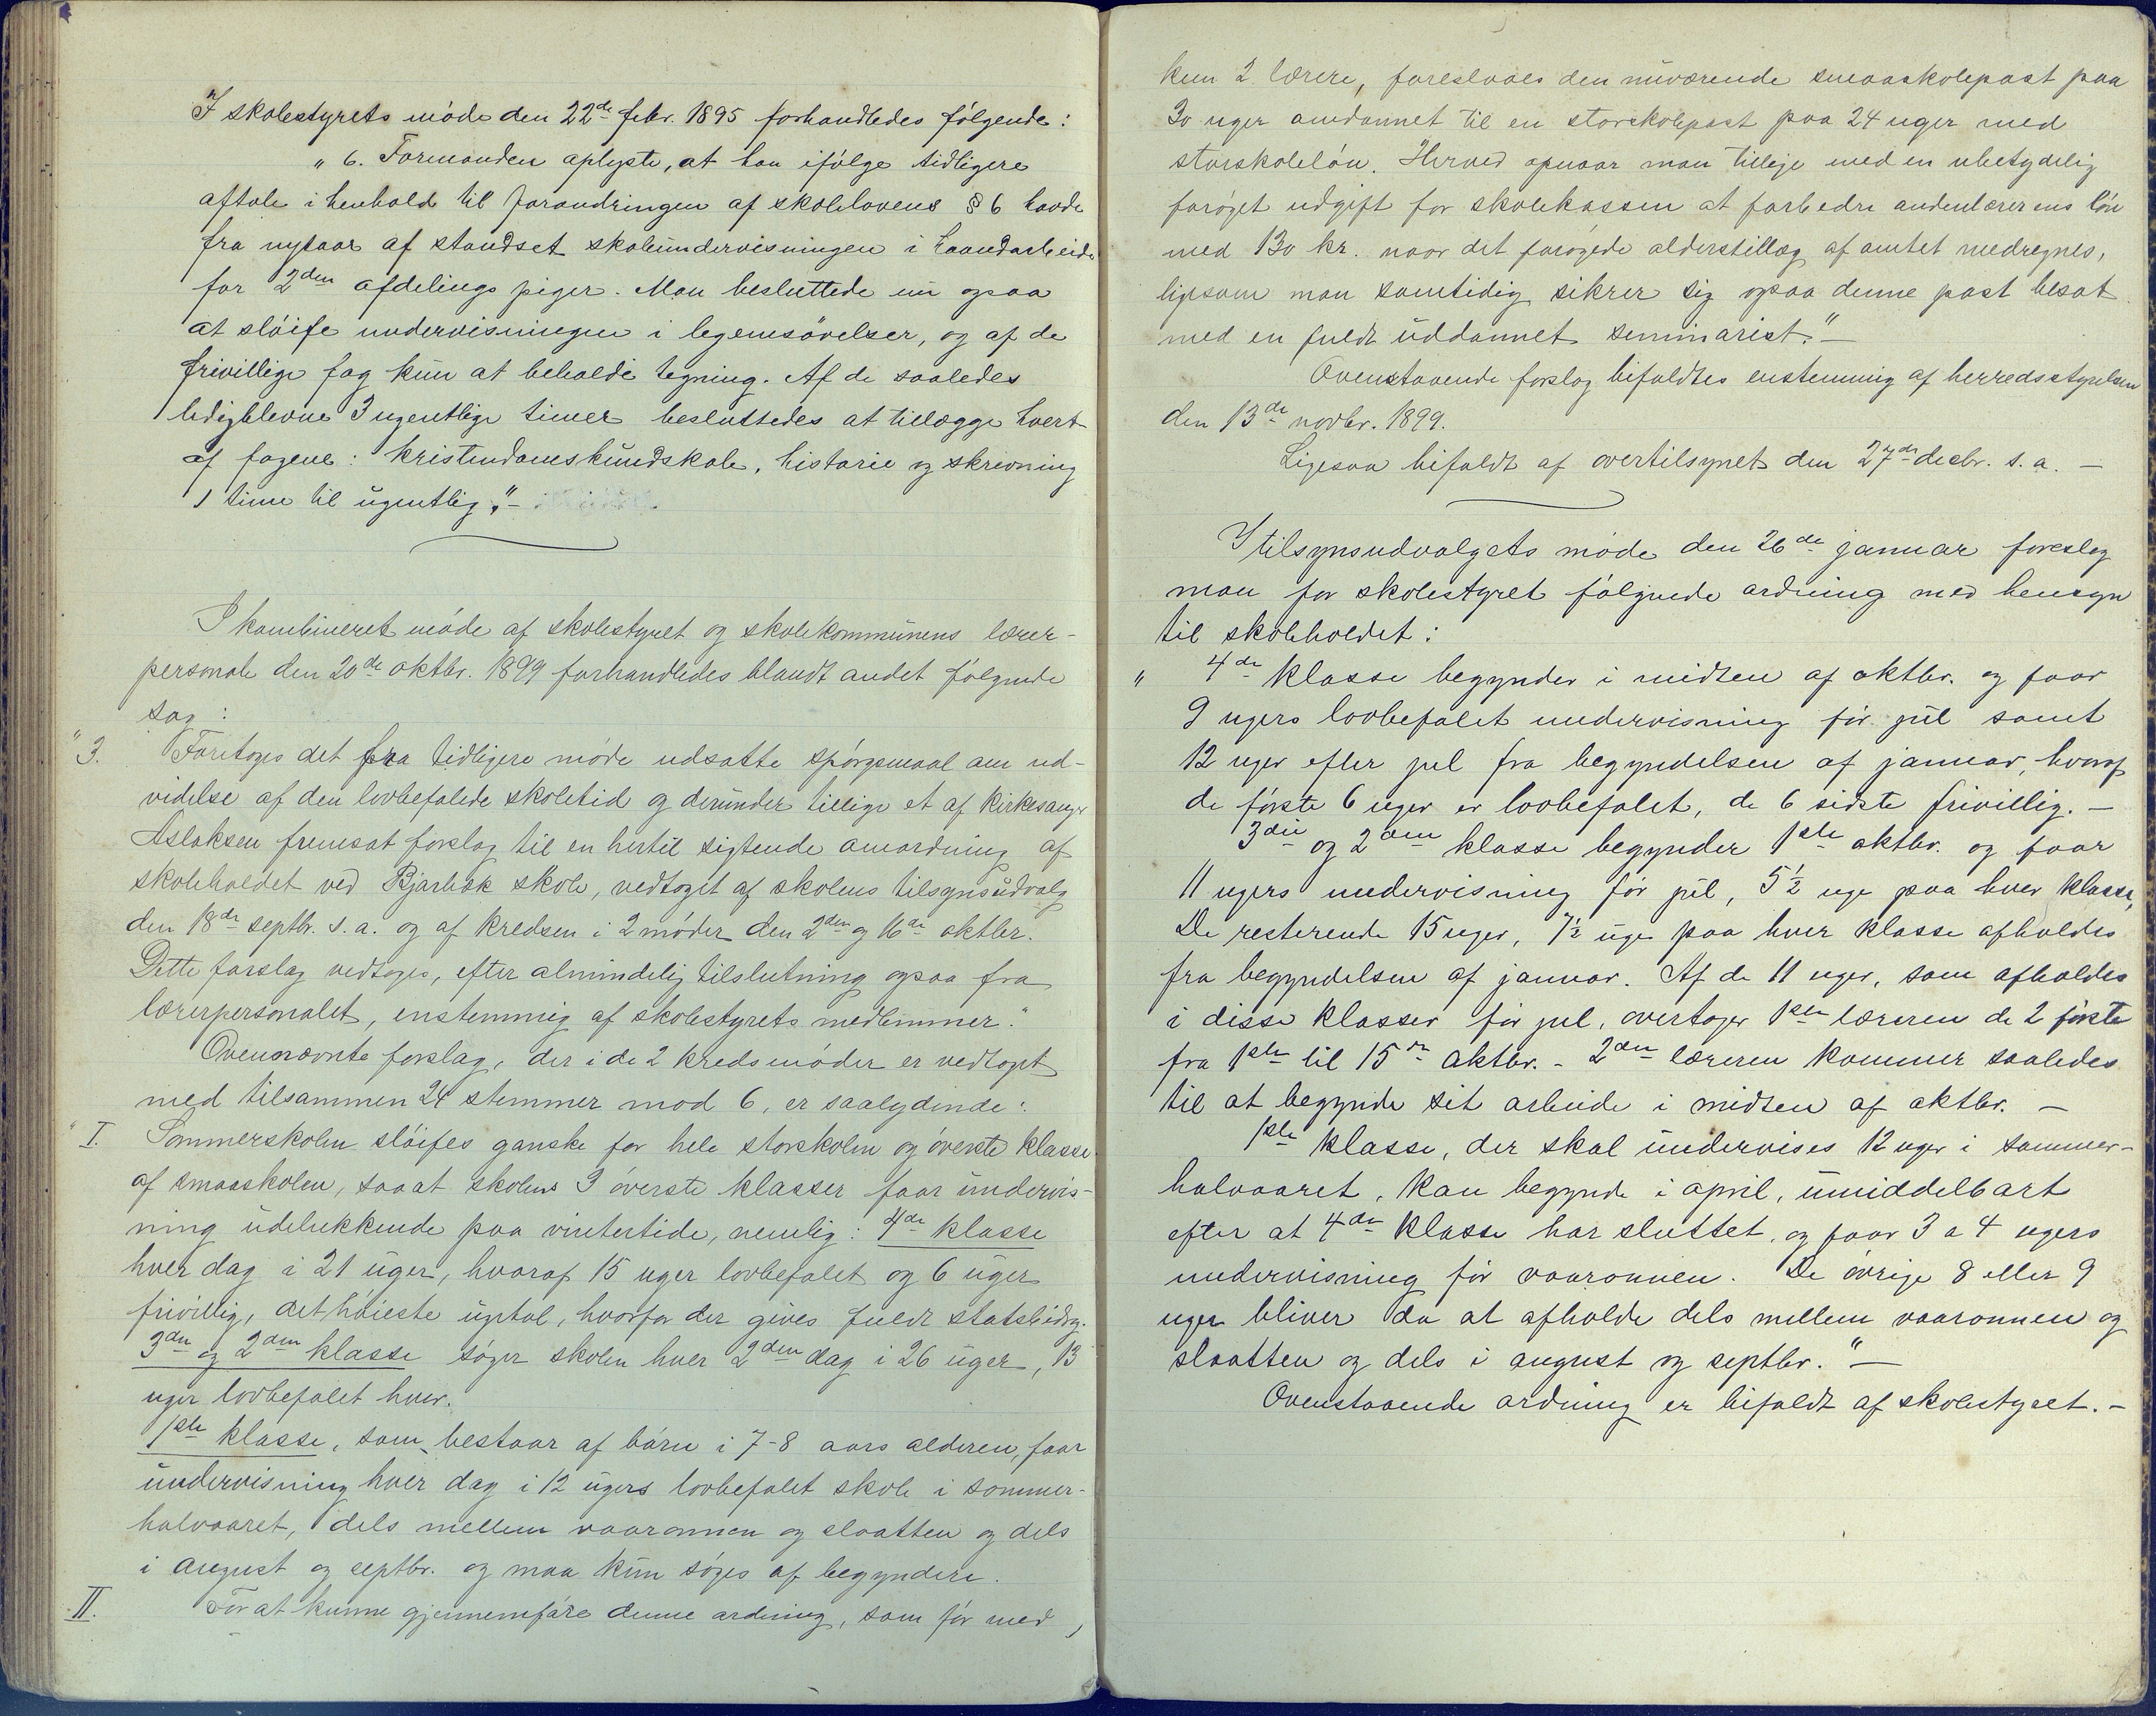 I skolestyrets møde den 22de febr. 1895 forhandledes følgende:
"6. Formanden oplyste, at han ifølge tidligere
aftale i henhold til forandringen af skolelovens § 6 havde
fra nytaar af standset skoleundervisningen i haandarbeide
for 2den afdelings piger. Man besluttede nu ogsaa
at sløife undervisningen i legemsøvelser, og af de
frivillige fag kun at beholde tegning. Af de saaledes
ledigblevne 3 ugentlige timer besluttedes at tillægge hvert
af fagene: kristendomskundskab, historie og skrivning
1 time til ugentlig." –
I kombineret møde af skolestyret og skolekommunens lærer-
personale den 20de oktbr. 1899 forhandledes blandt andet følgende
sag:
"3. Foretoges det fra tidligere møde udsatte spørgsmaal om ud-
videlse af den lovbefalede skoletid og derunder tillige et af kirkesanger
Aslaksen fremsat forslag til en hertil sigtende anordning af
skoleholdet ved Bjorbæk skole, vedtaget af skolens tilsynsudvalg
den 18de septbr. s. a. og af kredsen i 2 møder den 2den og 16de oktbr.
Dette forslag vedtoges, efter almindelig tilslutning ogsaa fra
lærerpersonalet, enstemmig af skolestyrets medlemmer."
Ovennævnte forslag, der i de 2 kredsmøder er vedtaget
med tilsammen 24 stemmer mod 6, er saalydende:
"I. Sommerskolen sløifes ganske for hele storskolen og øverste klasse
af smaaskolen, saaat skolens 3 øverste klasser faar undervis-
ning udelukkende paa vintertide, nemlig: 4de klasse
hver dag i 21 uger, hvoraf 15 uger lovbefalet og 6 uger
frivillig, det høieste ugetal, hvorfor der gives fuldt statsbidrag.
3die og 2den klasse søger skolen hver 2den dag i 26 uger, 13
uger lovbefalet hver.
1ste klasse, som bestaar af børn i 7-8 aars alderen, faar
undervisning hver dag i 12 ugers lovbefalet skole i sommer-
halvaaret, dels mellem vaaronnen og slaatten og dels
i august og septbr. og maa kun søges af begyndere.
II. For at kunne gjennemføre denne ordning, som før med
kun 2 lærere, foreslaaes den nuværende smaaskolepost paa
30 uger omdannet til en storskolepost paa 24 uger med
storskoleløn. Herved opnaar man tillige med en ubetydelig
forøget udgift for skolekassen at forbedre andenlærerens løn
med 130 kr. naar det forøgede alderstillæg af amtet medregnes,
ligesom man samtidig sikrer sig ogsaa denne post besat
med en fuldt uddannet seminarist." –
Ovenstaaende forslag bifaldtes enstemmig af herredsstyrelsen
den 13de novbr. 1899.
Ligesaa bifaldt af overtilsynet den 27de decbr. s. a. –
I tilsynsudvalgets møde den 26de januar foreslog
man for skolestyret følgende ordning med hensyn
til skoleholdet:
" 4de klasse begynder i midten af oktbr. og faar
9 ugers lovbefalet undervisning før jul samt
12 uger efter jul fra begyndelsen af januar, hvoraf
de første 6 uger er lovbefalet, de 6 sidste frivillig. –
3die og 2den klasse begynder 1ste oktbr. og faar
11 ugers undervisning før jul, 5½ uge paa hver klasse,
De resterende 15 uger, 7½ uge paa hver klasse afholdes
fra begyndelsen af januar. Af de 11 uger, som afholdes
i disse klasser før jul, overtager 1ste læreren de 2 første
fra 1ste til 15de oktbr. – 2den læreren kommer saaledes
til at begynde sit arbeide i midten af oktbr. –
1ste klasse, der skal undervises 12 uger i sommer-
halvaaret, kan begynde i april, umiddelbart
efter at 4de klasse har sluttet, og faar 3 a 4 ugers
undervisning før vaaronnen. De øvrige 8 eller 9
uger bliver da at afholde dels mellem vaaronnen og
slaatten og dels i august og septbr." –
Ovenstaaende ordning er bifaldt af skolestyret. –